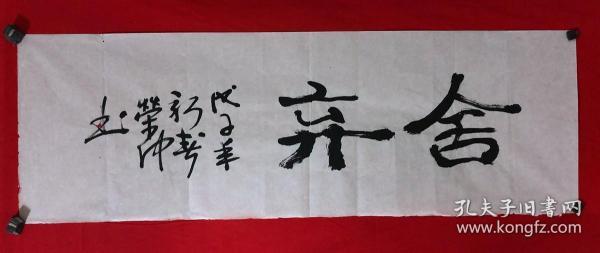 舍弃
戊子年
新春
荣仲
书
孔夫子旧书网
www.kongfz.com